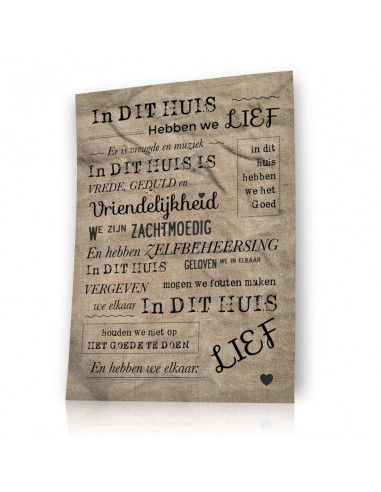 In DIT HUIS
Hebben we LIEF
Er is vreugde en muziek
In DIT HUIS IS
in dit
huis
hebben
we het
Goed
VREDE, GEDULD en
Vriendelijkheid
WE ZIJN ZACHTMOEDIG
En hebben ZELFBEHEERSING
In DIT HUIS GELOVEN WE IN ELKAAR
VERGEVEN mogen we fouten maken
we elkaar In DIT HUIS
houden we niet op
HET GOEDE TE DOEN
LIEF
En hebben we elkaar: